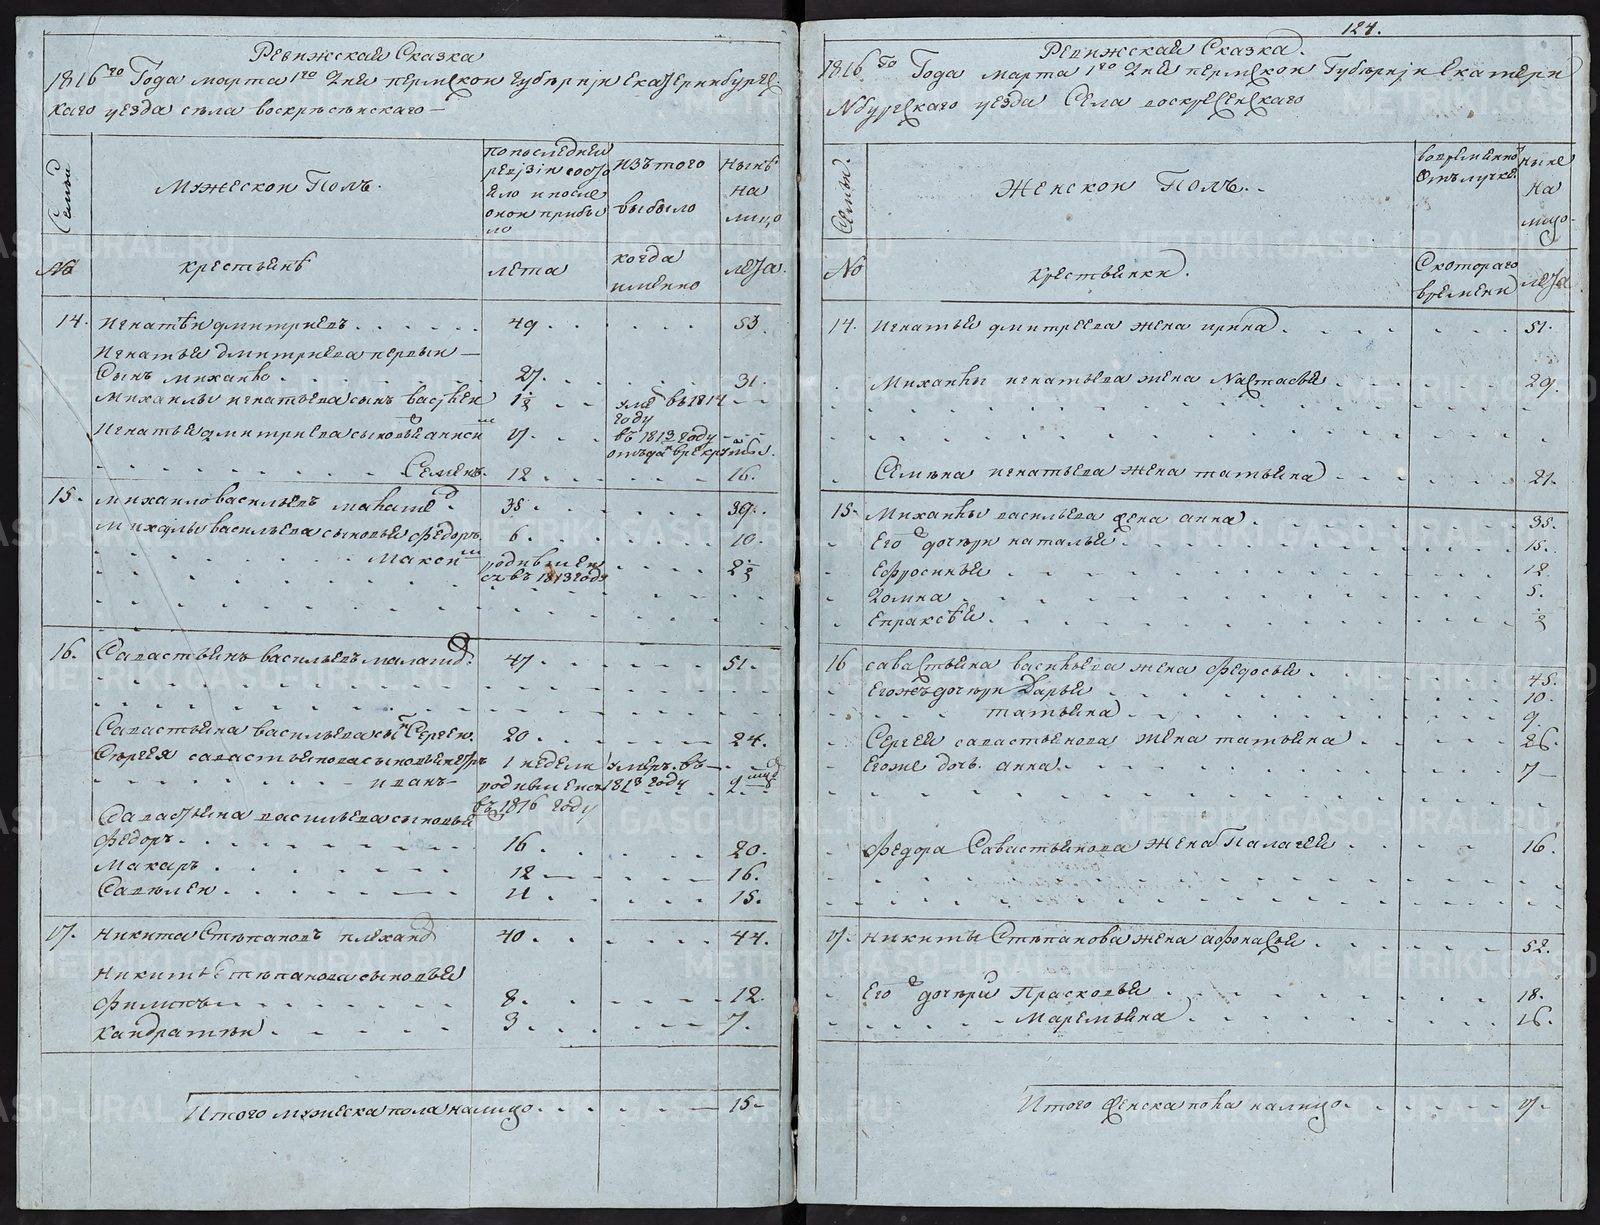 Ревижская Сказка
1816го Года марта 1го Дня пермской губернии Екатеринбургс
каго уезда села воскресенскаго
Семьи
Мужескои Полъ.
по последней
ревизии состо
яло и после
оной прибы
ло
изъ того
выбыло
нынѣ
на
лицо
№
крестьянѣ
лета
когда
имѣнно
лета.
14. Игнатѣи дмитриевъ 49 53.
Игнатья Дмитриева первыи
Сынъ михаило 27. 31.
Михаилы игнатьева сынъ 1½ уме въ 1814
году
Игнатья дмитриева сыновья 7 въ 1813 году
Семенъ. 12 16.
15. михаило васильевъ 35 39.
Михаилы васильева сыновья федоръ 6. 10.
Максим родивыися
въ 1813 году 2½
16. Савастьянъ васильевъ 47 51.
Савастьяна васильева сын Сергеи. 20 24.
Сергея савастьянова сыновья 1 недели умеръ въ
иванъ родивыися 1813 году
въ 1816 году
Савастьяна васильева сыновья
Федоръ 16 20.
Макаръ 12 16.
11 15.
17. Никита Степановъ плехано 40 44.
Никиты степанова сыновья
Филипъ 8 12.
Кандратеи 3 7.
Итого мужеска пола налицо 15
124.
Ревижская Сказка.
1816 го Года марта 1го Дня пермской Губернии Екатери
Нбургскаго уезда Села воскресенскаго
Семьи.
Женскои Полъ.
вовременной
Отълучке.
ныне
на
лицо
№
крестьянки.
Скотораго
времени
лета
14. Игнатья дмитреева жена ирина 51.
Михаилы игнатьева жена Настасья 29.
Семѣна игнатьева жена татьяна 21.
15. Михаилы васильева жена анна 35.
Его дочѣри наталья 15.
Ефросинья 12
Домна 5.
Епраксѣя ½
16 савастьяна васильева жена федосья 45.
Егожъ дочѣри Дарья 10.
татьяна 9.
Сергея савастьянова жена татьяна 26.
Егоже дочь анна 7
Федора Савастьянова жена Палагея 16.
17. Никиты Степанова жена афонасья 52.
Его дочѣри Прасковья 18.
Маремьяна 16.
Итого женска пола налицо 17.